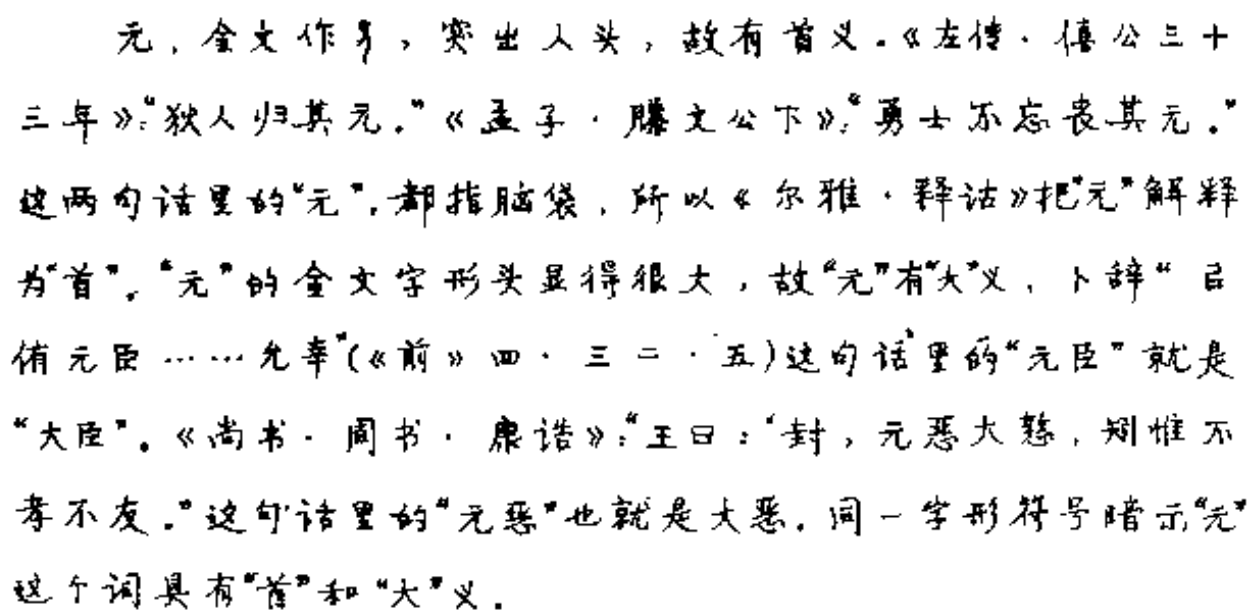 元，金文作，突出人头，故有首义。《左传·僖公三十
三年》：“狄人归其元。”《孟子·滕文公下》：“勇士不忘丧其元。”
这两句话里的“元”，都指脑袋，所以《尔雅·释诂》把“元”解释
为“首”。“元”的金文字形头显得很大，故“元”有“大”义，卜辞“
侑元臣……允幸”(《前》四·三二·五)这句话里的“元臣”就是
“大臣”。《尚书·周书·康诰》：“王曰：‘封，元恶大憝，矧惟不
孝不友。”这句话里的“元恶”也就是大恶。同一字形符号暗示“元”
这个词具有“首”和“大”义。